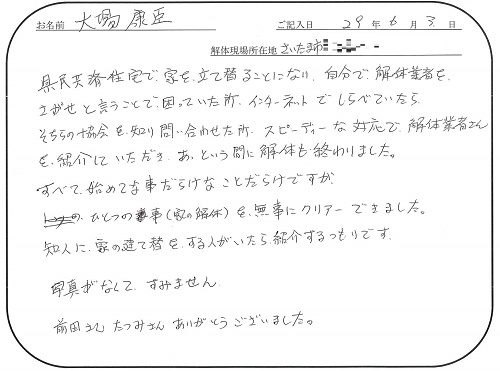 お名前 大場 康臣 ご記入日 29年 6月 3日
解体現場所在地 さいたま市
県民共済住宅で家を立て替ることになり、自分で解体業者を、
さがせと言うことで困っていた所、インターネットでしらべていたら、
そちらの協会を知り問い合わせた所、スピーディーな対応で、解体業者さん
を紹介していただき、あっという間に解体も終わりました。
すべて、始めてな事だらけなことだらけですが、
ひとつの事(家の解体)を、無事にクリアーできました。
知人に、家の建て替を、する人がいたら、紹介するつもりです。
写真がなくて、すみません。
前田さん たつみさん ありがとうございました。